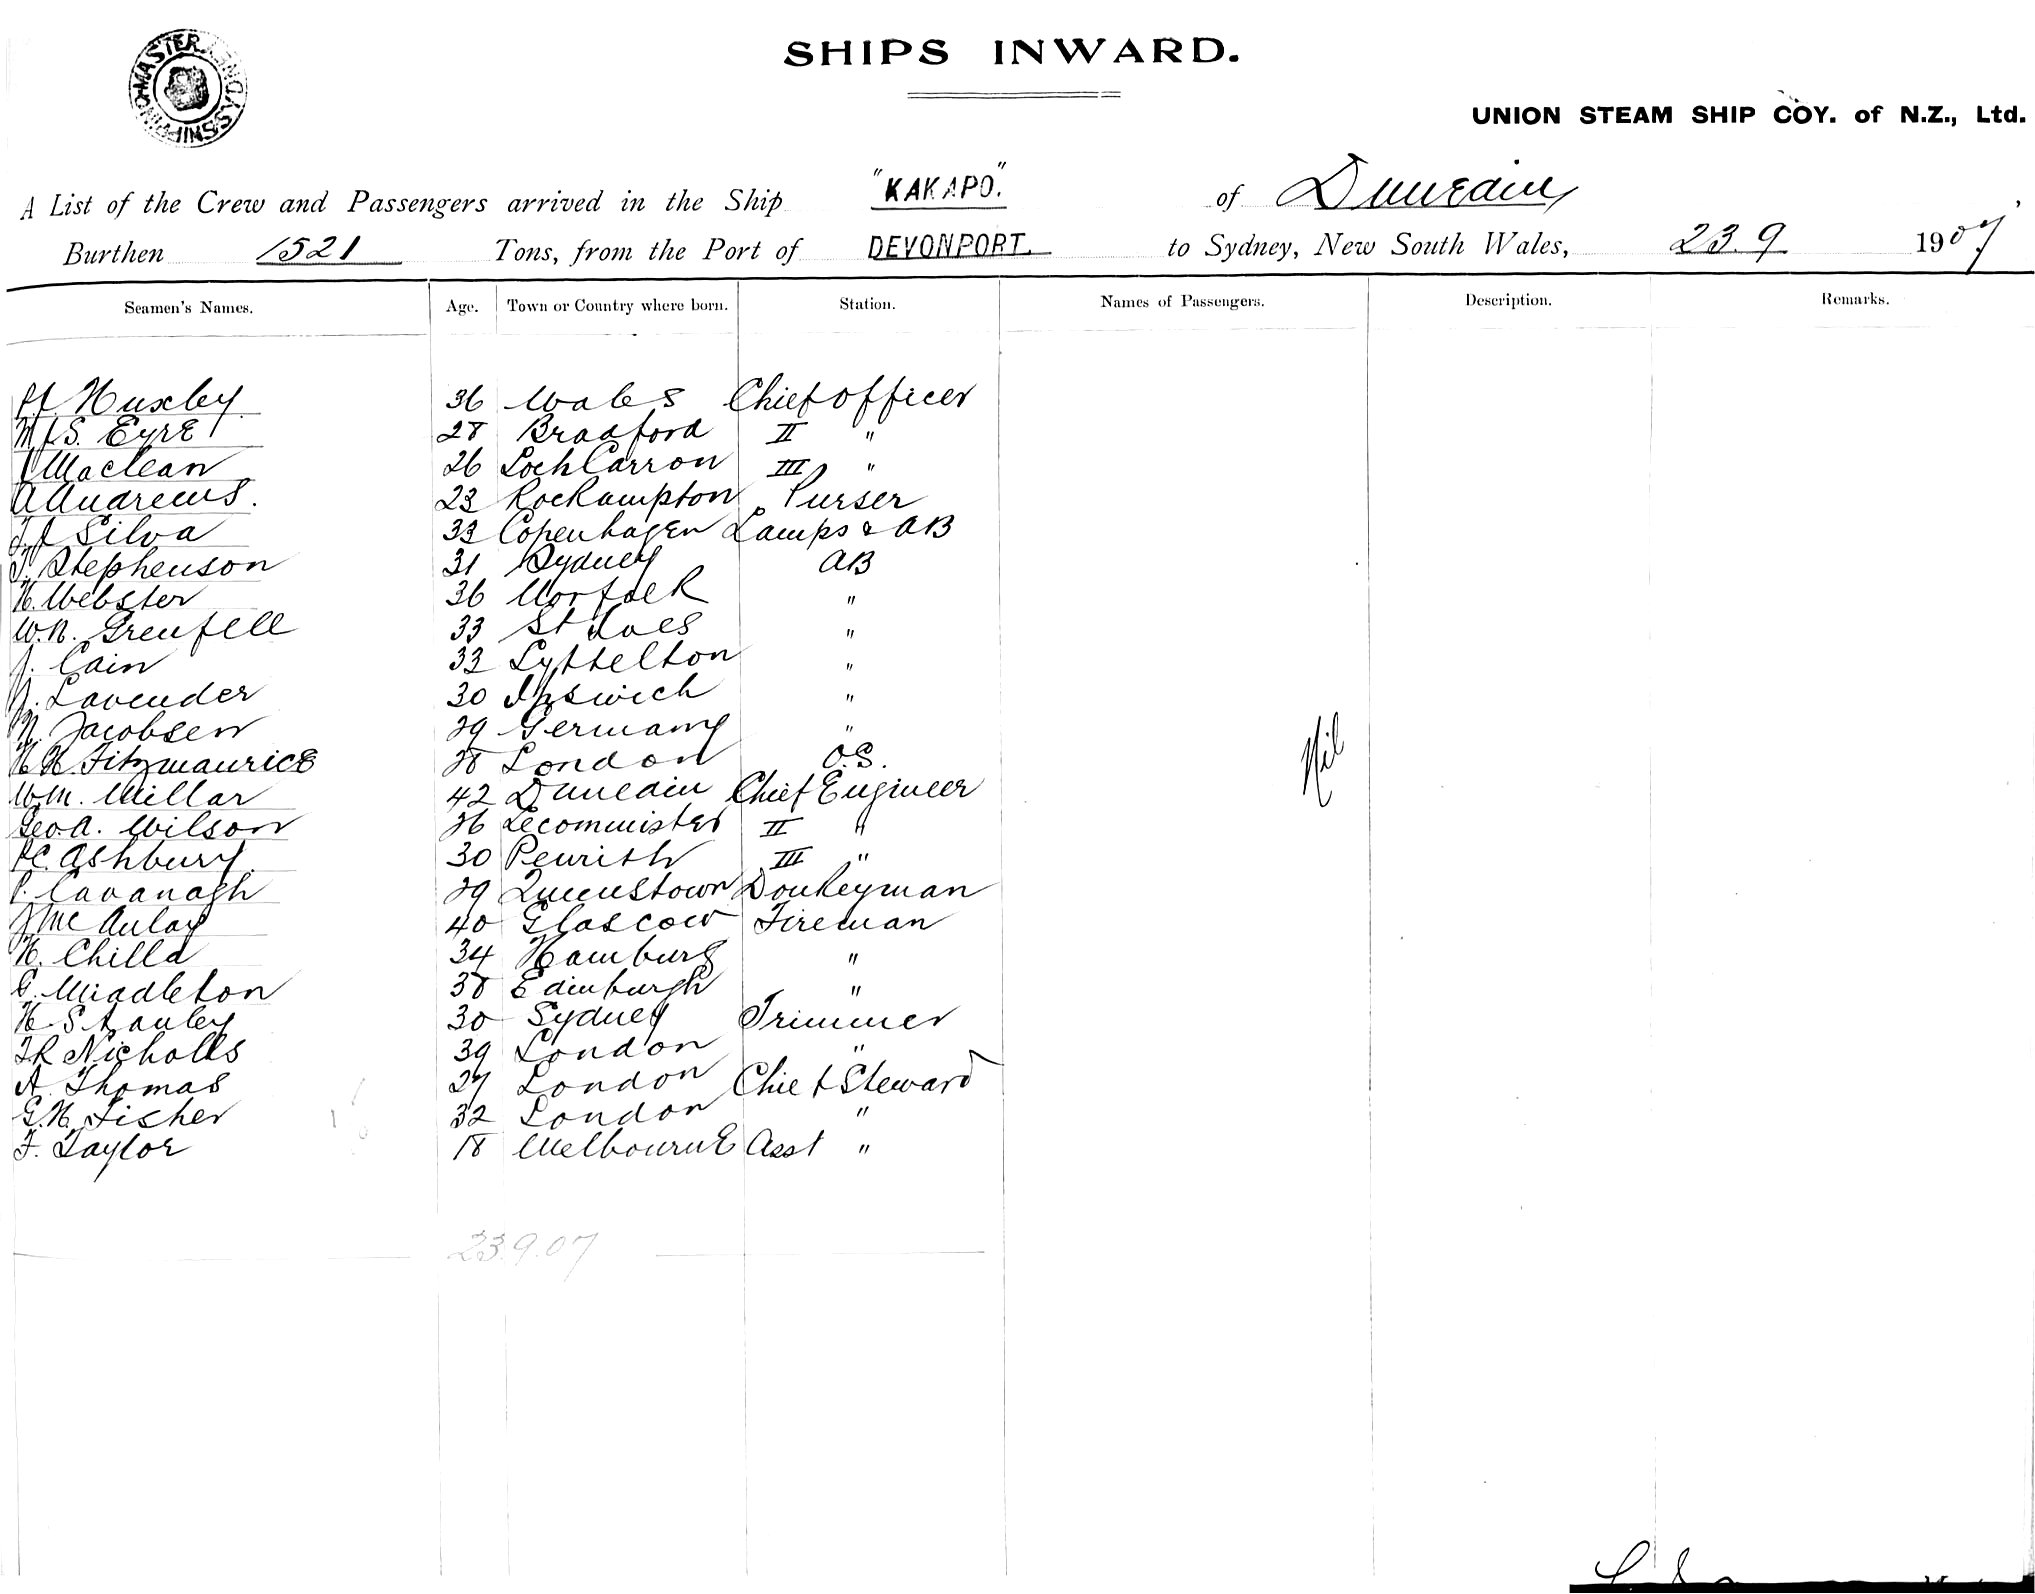 SHIPS INWARD.
SHIPPING MASTER SYDNEY
UNION STEAM SHIP COY. of N.Z., Ltd.
A List of the Crew and Passengers arrived in the Ship "KAKAPO." of Dunedin
Burthen 1521 Tons, from the Port of DEVONPORT. to Sydney, New South Wales, 23.9 1907
Seamen's Names. Age. Town or Country where born. Station. Names of Passengers. Description. Remarks.
Huxley 36 Wales Chief Officer
Eyre 28 Bradford II "
Maclean 26 Loch Carron III "
A Andrews. 23 Rockampton Purser
Silva 33 Copenhagen Lamps & AB
Stephenson 31 Sydney AB
H. Webster 36 Norfolk "
W.H. Grenfell 33 St Ives "
J. Cain 33 Lyttelton "
Lavender 30 Ipswich "
Jacobsen 29 Germany "
H.H. Fitzmaurice 28 London O.S.
Nil
W.M. Millar 42 Dunedin Chief Engineer
Geo. A. Wilson 26 Lecominister II "
Ashbury 30 Penrith III "
P. Cavanagh 29 Queenstown Donkeyman
J McAulay 40 Glascow Fireman
H. Chilla 34 Hamburg "
G. Middleton 38 Edinburgh "
H. Stanley 30 Sydney Trimmer
Nicholls 39 London "
A. Thomas 27 London Chief Steward
G.H. Fisher 32 London "
F. Taylor 18 Melbourne Asst "
23.9.07